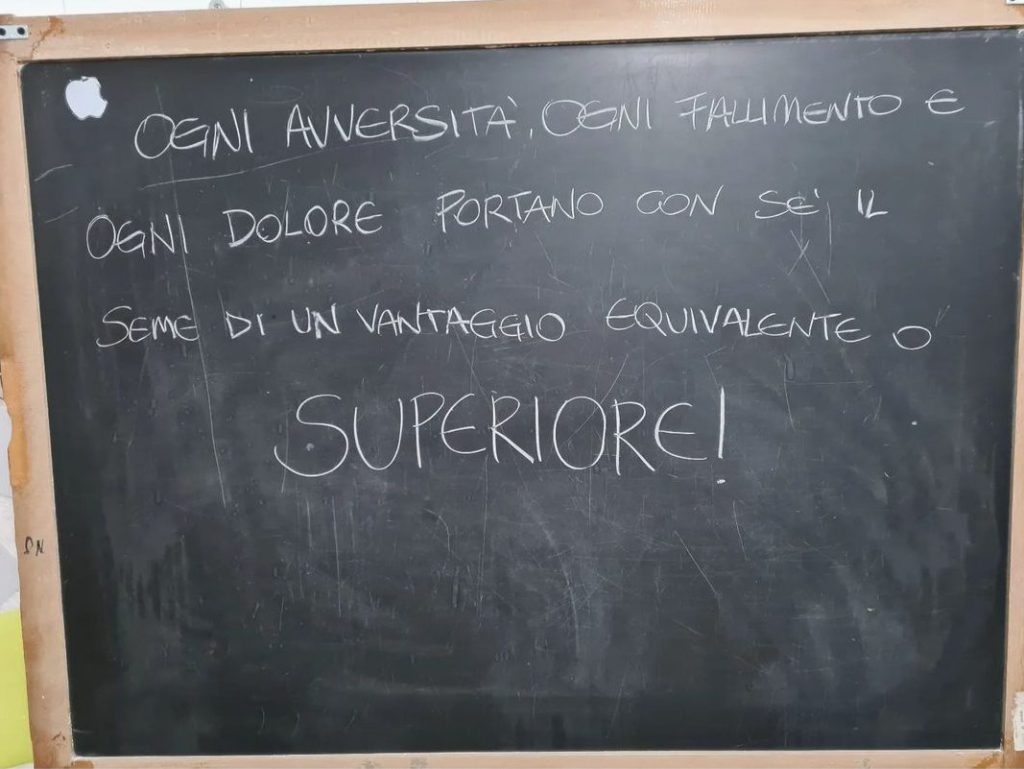 OGNI AVVERSITÀ, OGNI FALLIMENTO E
OGNI DOLORE PORTANO CON SE' IL
SEME DI UN VANTAGGIO EQUIVALENTE O
SUPERIORE!